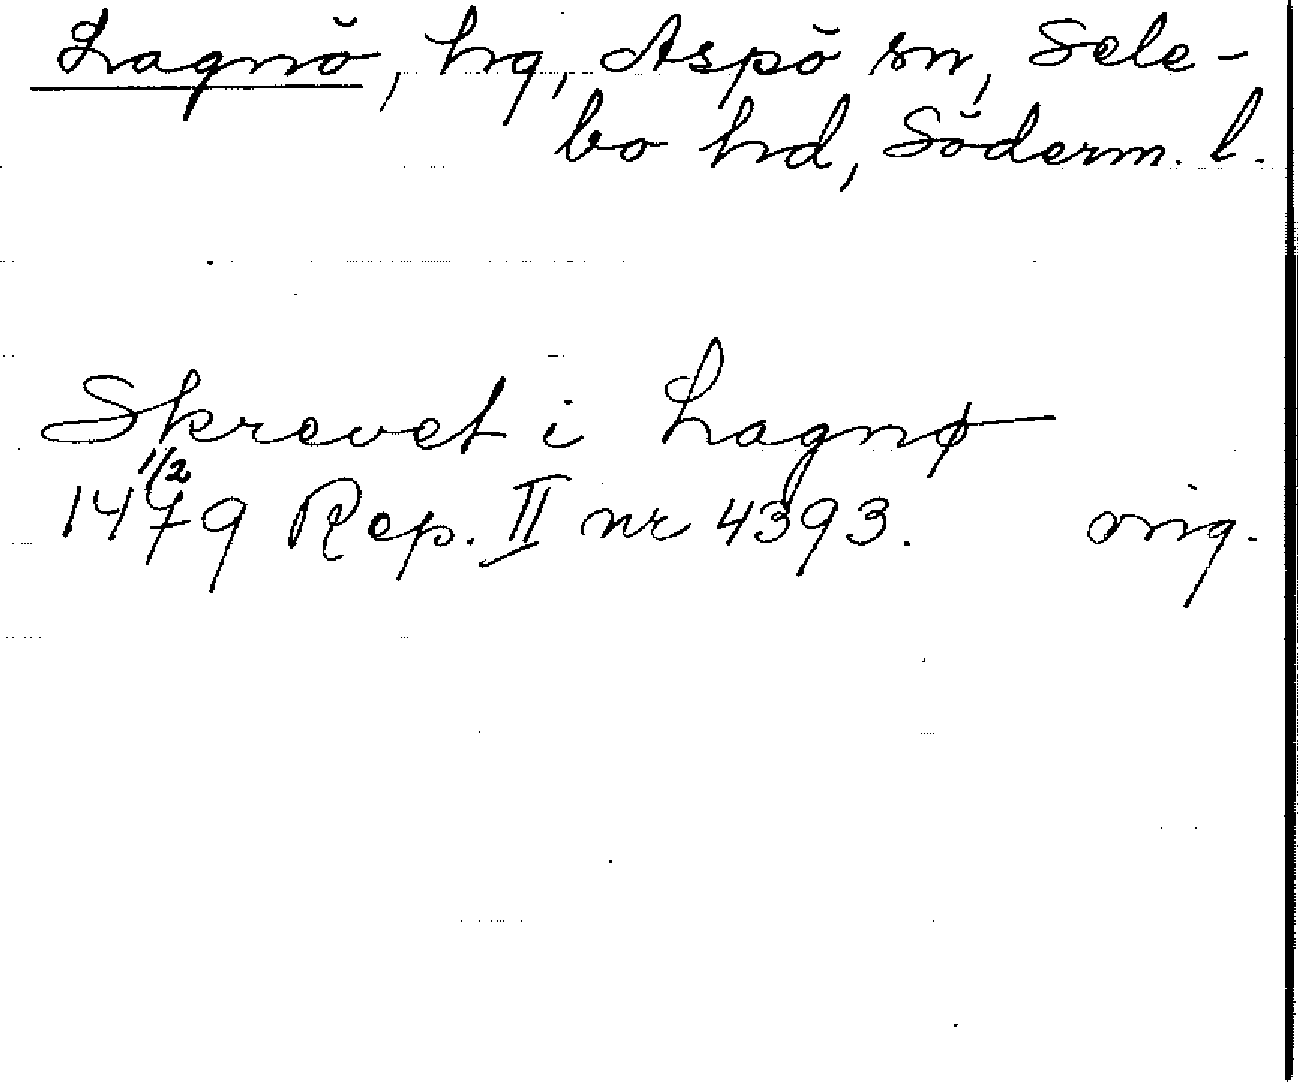 Lagnö, hg, Aspö sn, Sele-
bo hd, Söderm. l.
Skrevet i Lagnø
1/2
1479 Rep. II nr 4393. orig.